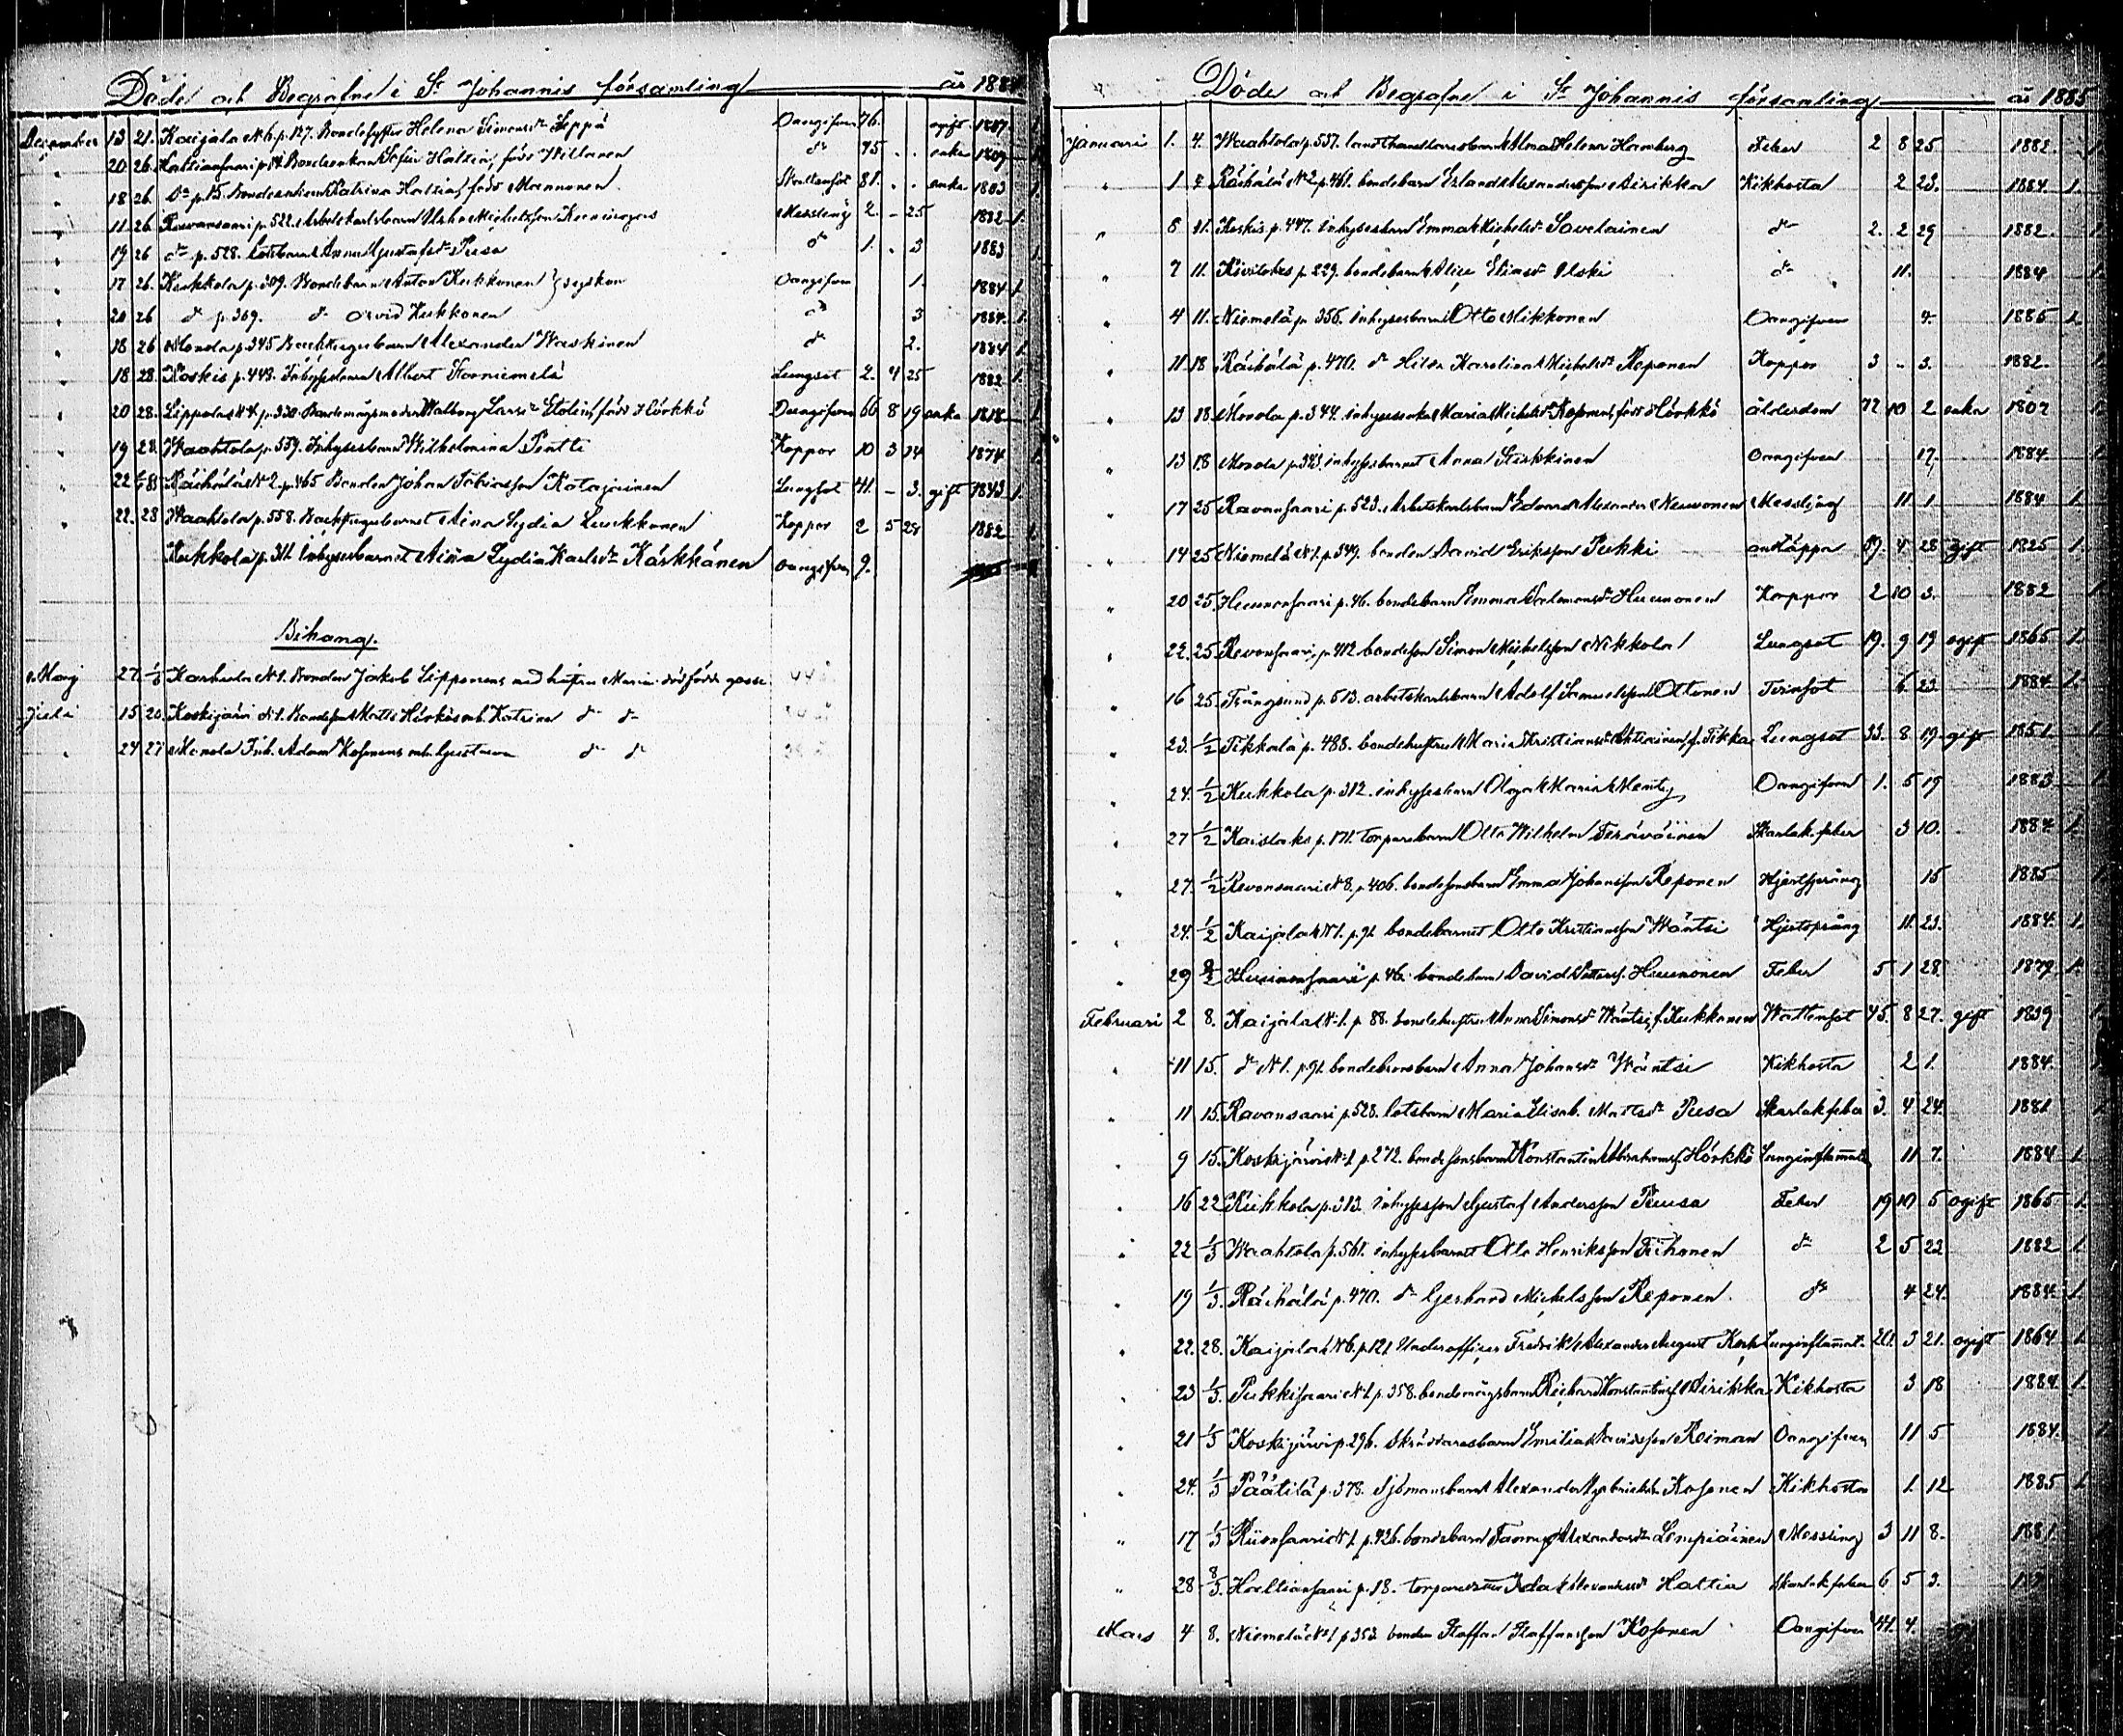 Döde och Begrafne i St Johannis församling år 1884
December 13 21. Kaijala N 6. p. 127. Bondehustru Helena Simonsdr Seppä Oangifven 76. ogift 1807
" 20 26. Haltiansaari p. Bondeenkan Sofia Haltia, född Willanen do 75 . . enka 1809
" 18 26. Do p. 15. Bondeenkan Katrina Haltia, född Mannonen 81. . . enka 1803 1.
" 11 26. Ravansaari p. 522. Arbetskarlsbarn Michelsson Messling 2. - 25 1882 1.
" 19 26 do p. 528. Lotsbarnet Anna Gustafsdr Pusa do 1. . 3 1883 1.
" 17 26. Kukkola p. 309. Bondebarn Anton Kukkonen } syskon Oangifven 1. 1884 1.
" 20 26 do p. 309. do Arvid Kukkonen do 3 1884. 1.
" 18 26 Monola p. 345 Backstugubarn Alexander Waskinen do 2. 1884 1.
" 18 28. Koskis p. 443. Inhysesbarn Albert Forniemelä Lungsot 2. 4 25 1882 1.
" 20 28. Lippola N 4 p. 330. Bondemågsmoder Walborg Larsdr Stolin, född Hörkkö Oangifven 66 8 19 enka 1818 1.
" 19 28. Waahtola p. 559. Inhysesbarn Wilhelmina Pentti Koppor 10 3 24 1874 1.
" 22 Räihälä N 2. p. 465 Bonden Johan Tobiasson Katajainen Lungsot 41. - 3. gift 1843 1.
" 22. 28 Waahtola p. 558. Backstugubarnet Aina Lydia Luukkanen Koppor 2 5 28 1882 1.
Kukkola p. 311. Inhysesbarnet Aina Lydia Karlsdr Kärkkänen Oangifven 9.
Bihang.
Maij 27. 1/6 Karhula N 1. Bonden Jakob Lipponens med hustru Maria dödfödde gosse
Juli 15 20. Koskijärvi N 1. Bondeson Matts Hörkös m. h. Katrina do do
" 24 27 Monola Inh. Adam Kosonens m. h. Gustava do do
Döde och Begrafne i St Johannis församling år 1885
Januari 1. 4. Waahtola p. 557. landthandlaresbarn Alma Helena Hamberg Feber 2 8 25 1882. 1.
" 1 4 Räihälä N 2 p. 461. bondebarn Erland Alexandersson Airikka Kikhosta 2 23. 1884 1.
" 8 11. Koskis p. 447. inhysesbarn Emma Michelsdr Savolainen do 2. 2 29 1882. 1.
" 7 11. Kiviloks p. 229. bondebarn Alice Eliasdr Ilski do 11. 1884. 1.
" 4 11. Niemelä p. 356. inhysesbarn Otto Mikkonen Oangifven 4. 1885 1.
" 11 18 Räihälä p. 470. do Hilda Karolina Michelsdr Reponen Koppor 3 - 3. 1882. 1.
" 13 18 Monola p. 344. inhysesenka Maria Michelsdr Kosonen, född Hörkkö ålderdom 77 10 2 enka 1807 1.
" 13 18 Monola p. 343. inhysesbarnet Anna Kukkinen Oangifven 17. 1884. 1.
" 17 25 Ravansaari p. 523. Arbetskarlsbarn Edvard Alexander Neuvonen Messling 11 1. 1884 1.
" 14 25 Niemelä N 1. p. 349. bonden David Eriksson Pukki 59. 4. 28 gift 1825 1.
" 20 25. Huunonsaari p. 46. bondebarn Emma Salomonsdr Huunonen Koppor 2 10 3. 1882 1.
" 22. 25 Revonsaari p. 412 bondeson Simon Michelsson Nikkola Lungsot 19. 9 19 ogift 1865 1.
" 16 25 Trångsund p. 513. arbetskarlsbarn Adolf Samuelsson Ottonen Tvinsot 6. 23 1884. 1.
" 23. 1/2 Tikkala p. 488. bondehustru Maria Kristiansdr Aktiainen, f. Tikka Lungsot 33. 8 19. gift 1851. 1.
" 24. 1/2 Kukkola p. 312. inhysesbarn Olga Maria Mentty Oangifven 1. 5 19 1883 1.
" 27 1/2 Kaislaks p. 171. torparebarn Otto Wilhelm Terävöinen Skarlak.feber 3 10. 1884. 1.
" 27. 1/2 Revonsaari N 8. p. 406. bondesonsbarn Emma Johansson Reponen Hjertsprång 15 1885 1.
" 24. 1/2 Kaijala N 1. p. 91. bondebarnet Otto Kristiansson Wäntsi Hjertsprång 11. 23. 1884. 1.
" 29 8/2 Huunonsaari p. 46. bondebarn David Petters. Huunonen Feber 5 1 28. 1879 1.
Februari 2 8. Kaijala N 1. p. 88. bondehustru Anna Simonsdr Wäntsi, f. Kukkonen Wattensot 45. 8 27. gift 1839 1.
" 11 15. do N 1. p. 91. bondebrorsbarn Anna Johansdr Wäntsi Kikhosta 2 1. 1884. 1.
" 11 15. Ravansaari p. 528. lotsbarn Maria Elisab. Mattsdr Pusa Skarlak.feber 3. 4 24. 1881 1.
" 9 15. Koskijärvi N 1. p. 272. bondesonsbarn Konstantin Abrahams. Hörkkö Lunginflammat. 11 7. 1884 1.
" 16 22 Kukkola p. 313. inhysesson Gustaf Andersson Pusa Feber 19 10 5 ogift 1865 1.
" 22 1/3 Waahtola p. 561. inhysesbarnet Otto Henriksson Tiihonen do 2 5 22 1882 1.
" 19 1/3. Räihälä p. 470. do Gerhard Michelsson Reponen. do 4 24. 1884. 1.
" 22. 28. Kaijala N 6. p. 121 Underofficer Fredrik Alexander August Lunginflammat. 20. 3 21. ogift 1864 1.
" 23 1/3. Pukkisaari N 1. p. 358. bondemågsbarn Richard Konstantinss. Airikka Kikhosta 3 18 1884. 1.
" 21 1/3 Koskijärvi p. 296. Skräddaresbarn Emilia Davidsson Reiman Oangifven 11 5 1884. 1
" 24. 1/3 Päätilä p. 378. Sjömansbarn Alexandra Gabrielsdr Kosonen Kikhosta 1. 12 1885 1.
" 17 1/3 Riionsaari N 1. p. 426. bondebarn Fanny Alexandersdr Lempiäinen Messling 3 11 8. 1881.
" 28 8/3. Haltiansaari p. 18. torparedotter Ida Alexandersdr Haltia Skarlak.feber 6 5 3.
Mars 4 8. Niemelä N 1 p. 353 bonden Staffan Staffansson Kosonen Oangifven 44. 4.